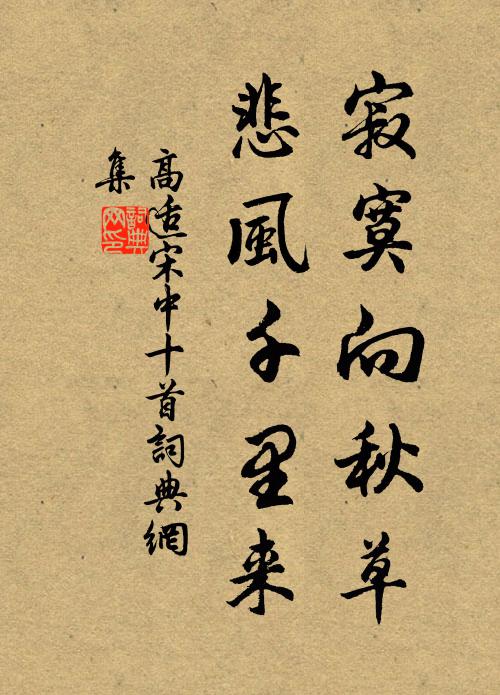 寂寞向秋草
悲風千里来
高适宋中十首詞典網
集
詞典网印